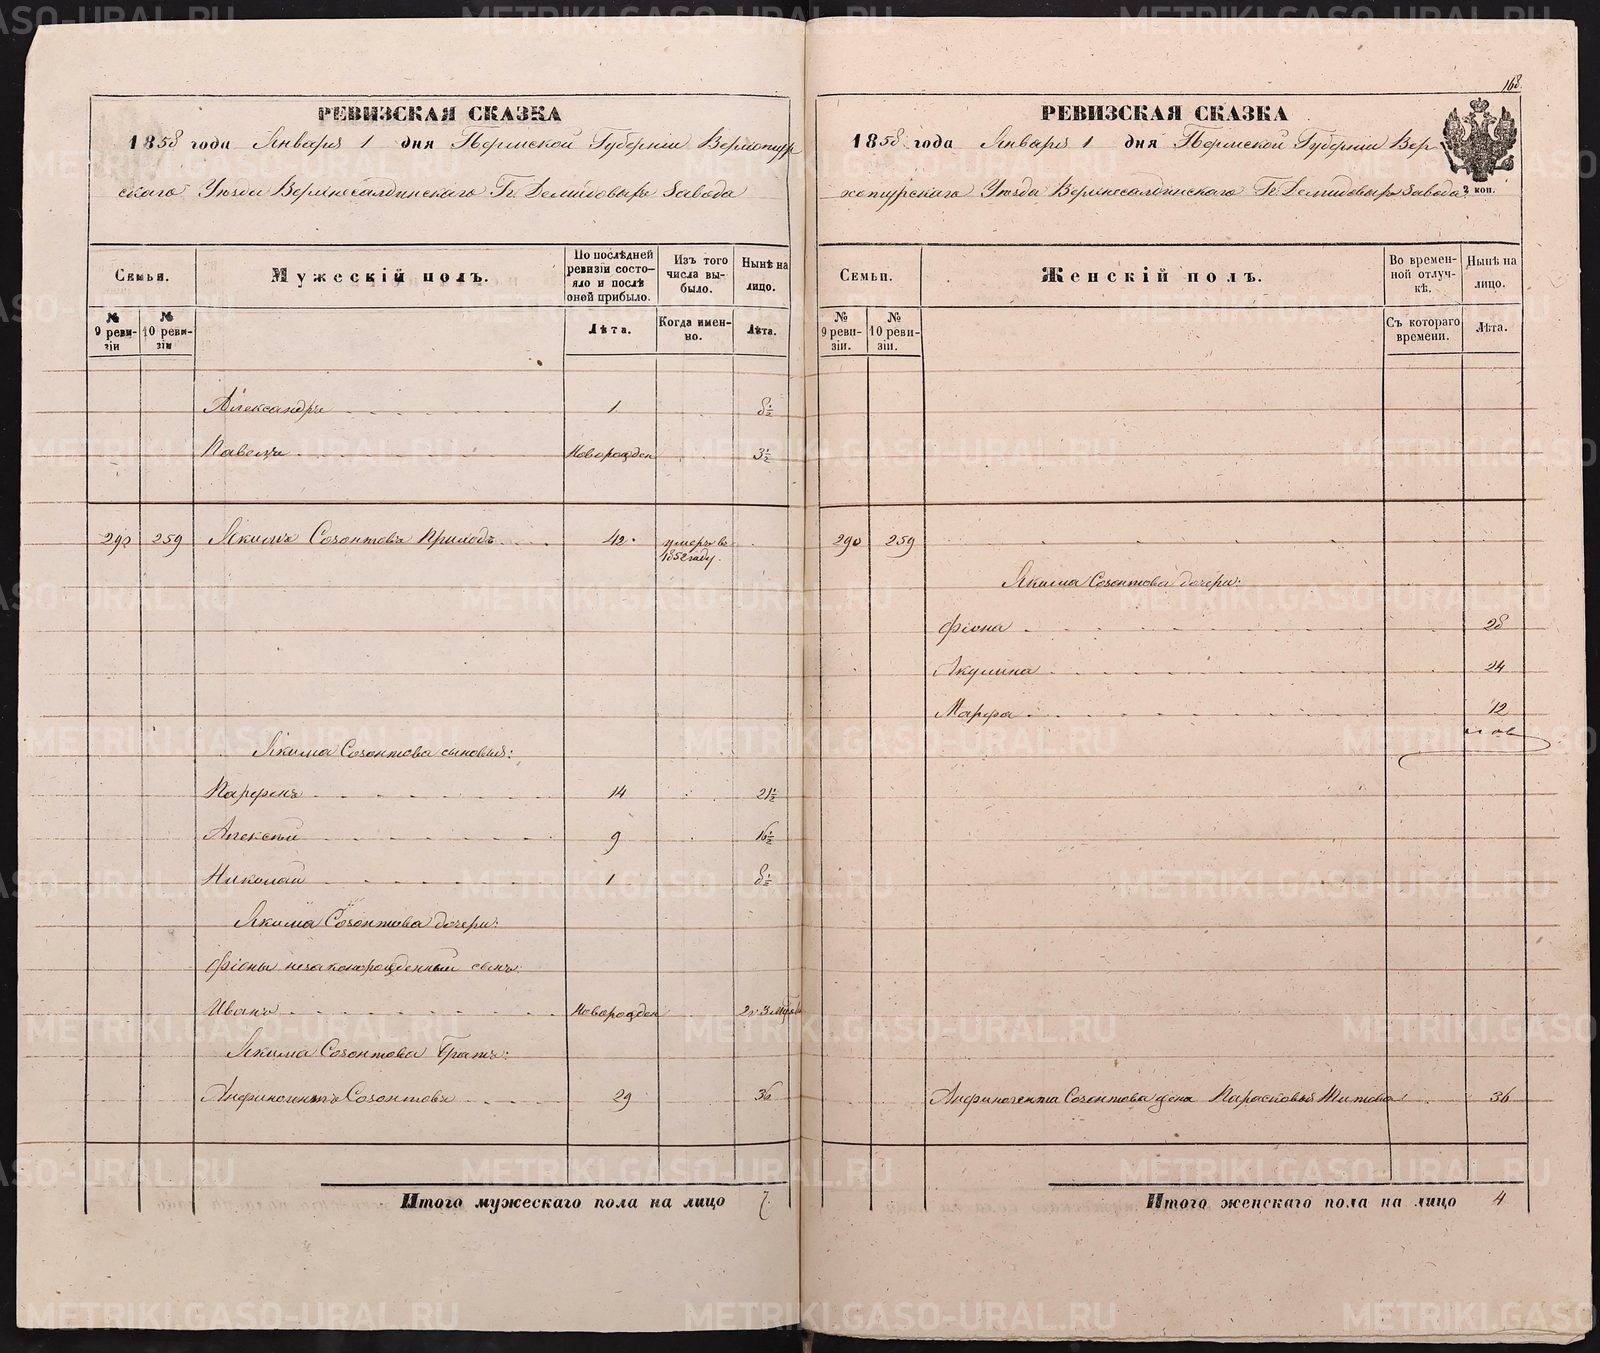 РЕВИЗСКАЯ СКАЗКА
1858 года Января 1 дня Пермской Губерніи Верхотур
скаго Уѣзда Верхнесалдинскаго Гг. Демидовыхъ Завода
Семьи.
№ 9 ревизіи
№ 10 ревизіи
Мужескій полъ.
По послѣдней ревизіи состояло и послѣ оной прибыло.
Лѣта.
Изъ того числа выбыло.
Когда именно.
Нынѣ на лицо.
Лѣта.
Александръ 1 8½
Павелъ Новорожден 3½
290 259 Якимъ Созонтовъ Приходъ 42 умеръ въ 1852 году.
Якима Созонтова сыновья:
Парфенъ 14 21½
Алексѣй 9 16½
Николай 1 8½
Якима Созонтова дочери:
Фіоны незаконорожденный сынъ:
Иванъ Новорожден
Якима Созонтова Братъ:
Анфиногентъ Созонтовъ 29 36
Итого мужескаго пола на лицо 7
168
РЕВИЗСКАЯ СКАЗКА
1858 года Января 1 дня Пермской Губерніи Вер
хотурскаго Уѣзда Верхнесалдинскаго Гг. Демидовыхъ Завода
2 коп.
Семьи.
№ 9 ревизіи.
№ 10 ревизіи.
Женскій полъ.
Во временной отлучкѣ.
Съ котораго времени.
Нынѣ на лицо.
Лѣта.
290 259
Якима Созонтова дочери:
Фіона 28
Акулина 24
Марфа 12
Анфиногента Созонтова жена Парасковья Титова 36
Итого женскаго пола на лицо 4
METRIKI.GASO-URAL.RU